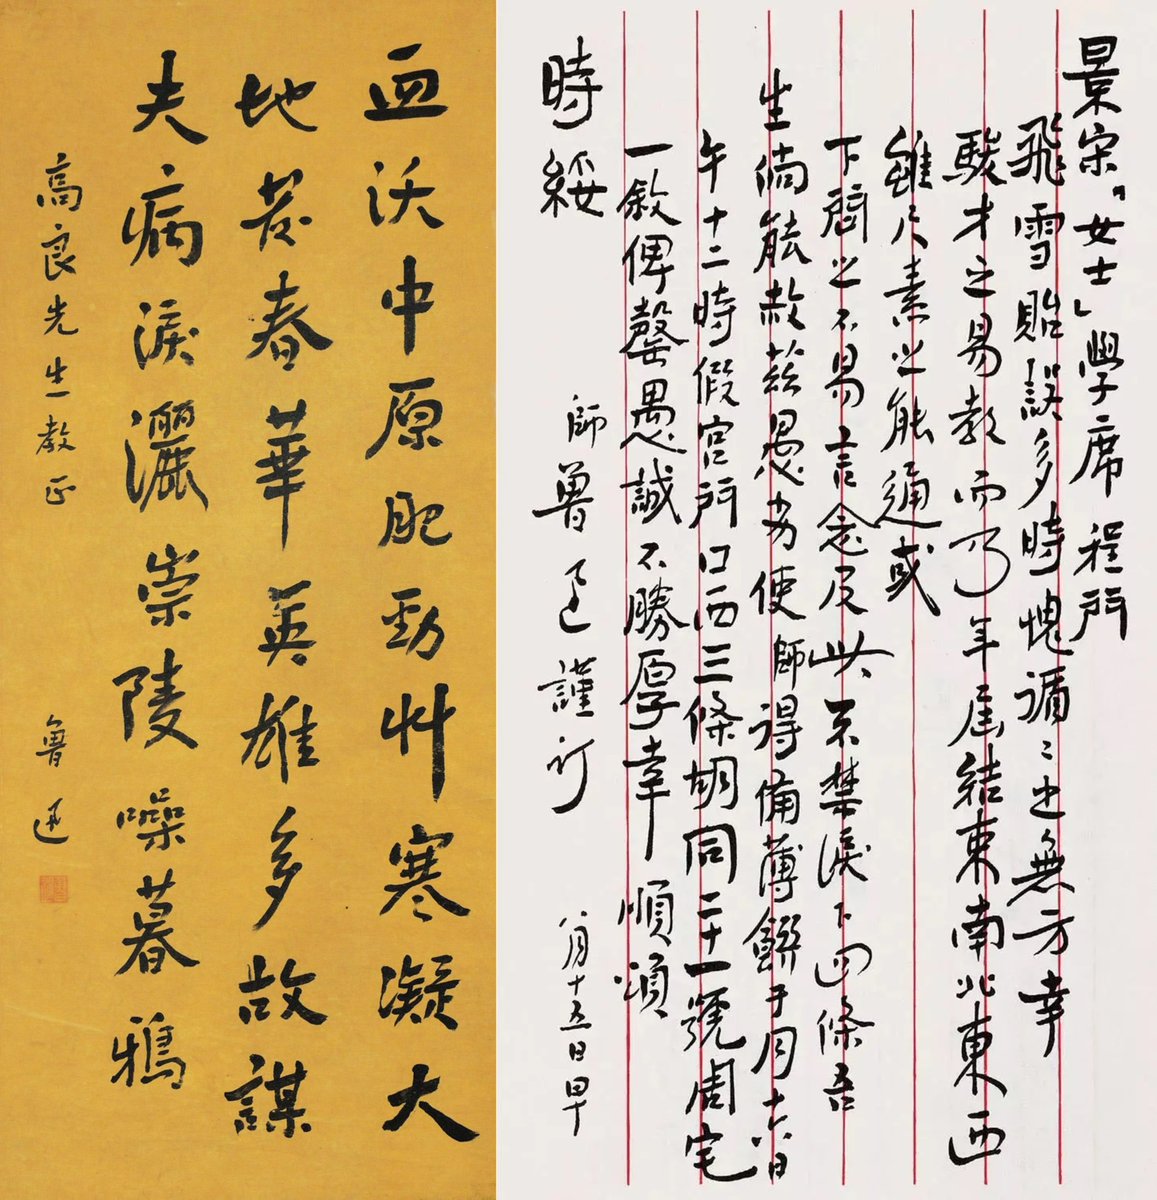 血沃中原肥勁艸寒凝大
地發春華英雄多故謀
夫病淚灑崇陵噪暮鴉
高良先生教正 魯迅
景宋「女士」學席 程門
飛雪貽誤多時愧循〻之無方幸
駿才之易教而乃年屆結束南北東西
雖尺素之能通或
下問之不易言念及此不禁淚下四條吾
生倘能赦茲愚劣使師得備薄饌于月十六日
午十二時假宮門口西三條胡同二十一號周宅
一敘俾罄愚誠不勝厚幸 順頌
時綏
師魯迅謹訂 八月十五日早